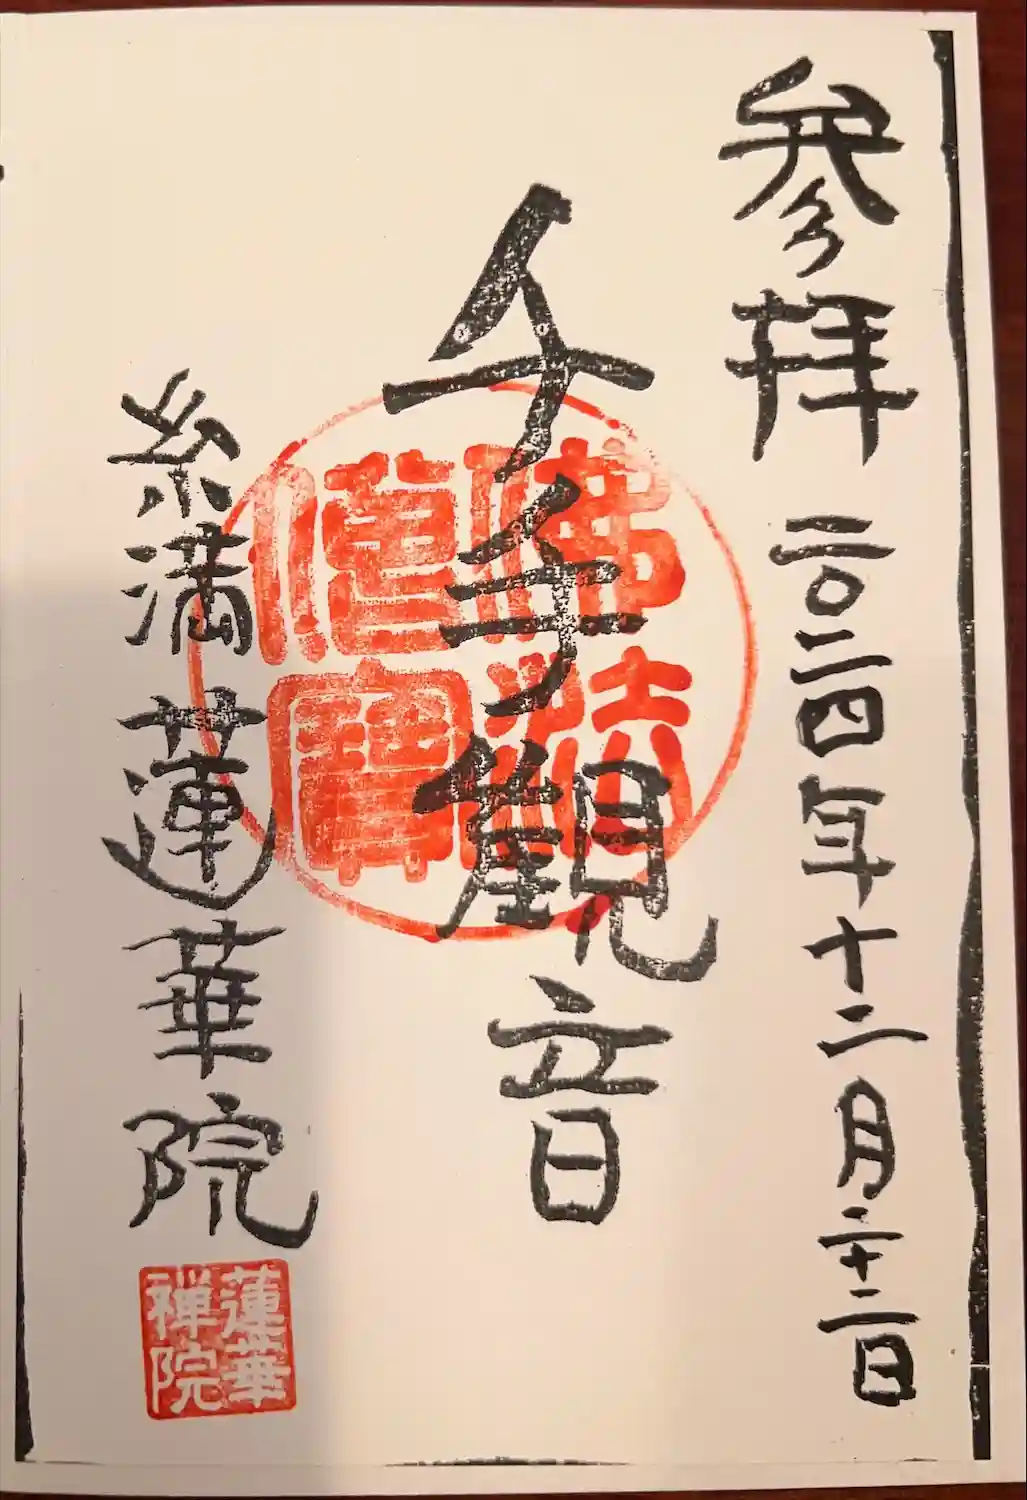 参拝 二〇二四年十二月二十二日
千手観音
佛法
僧寶
糸満 蓮華院
蓮華
禅院